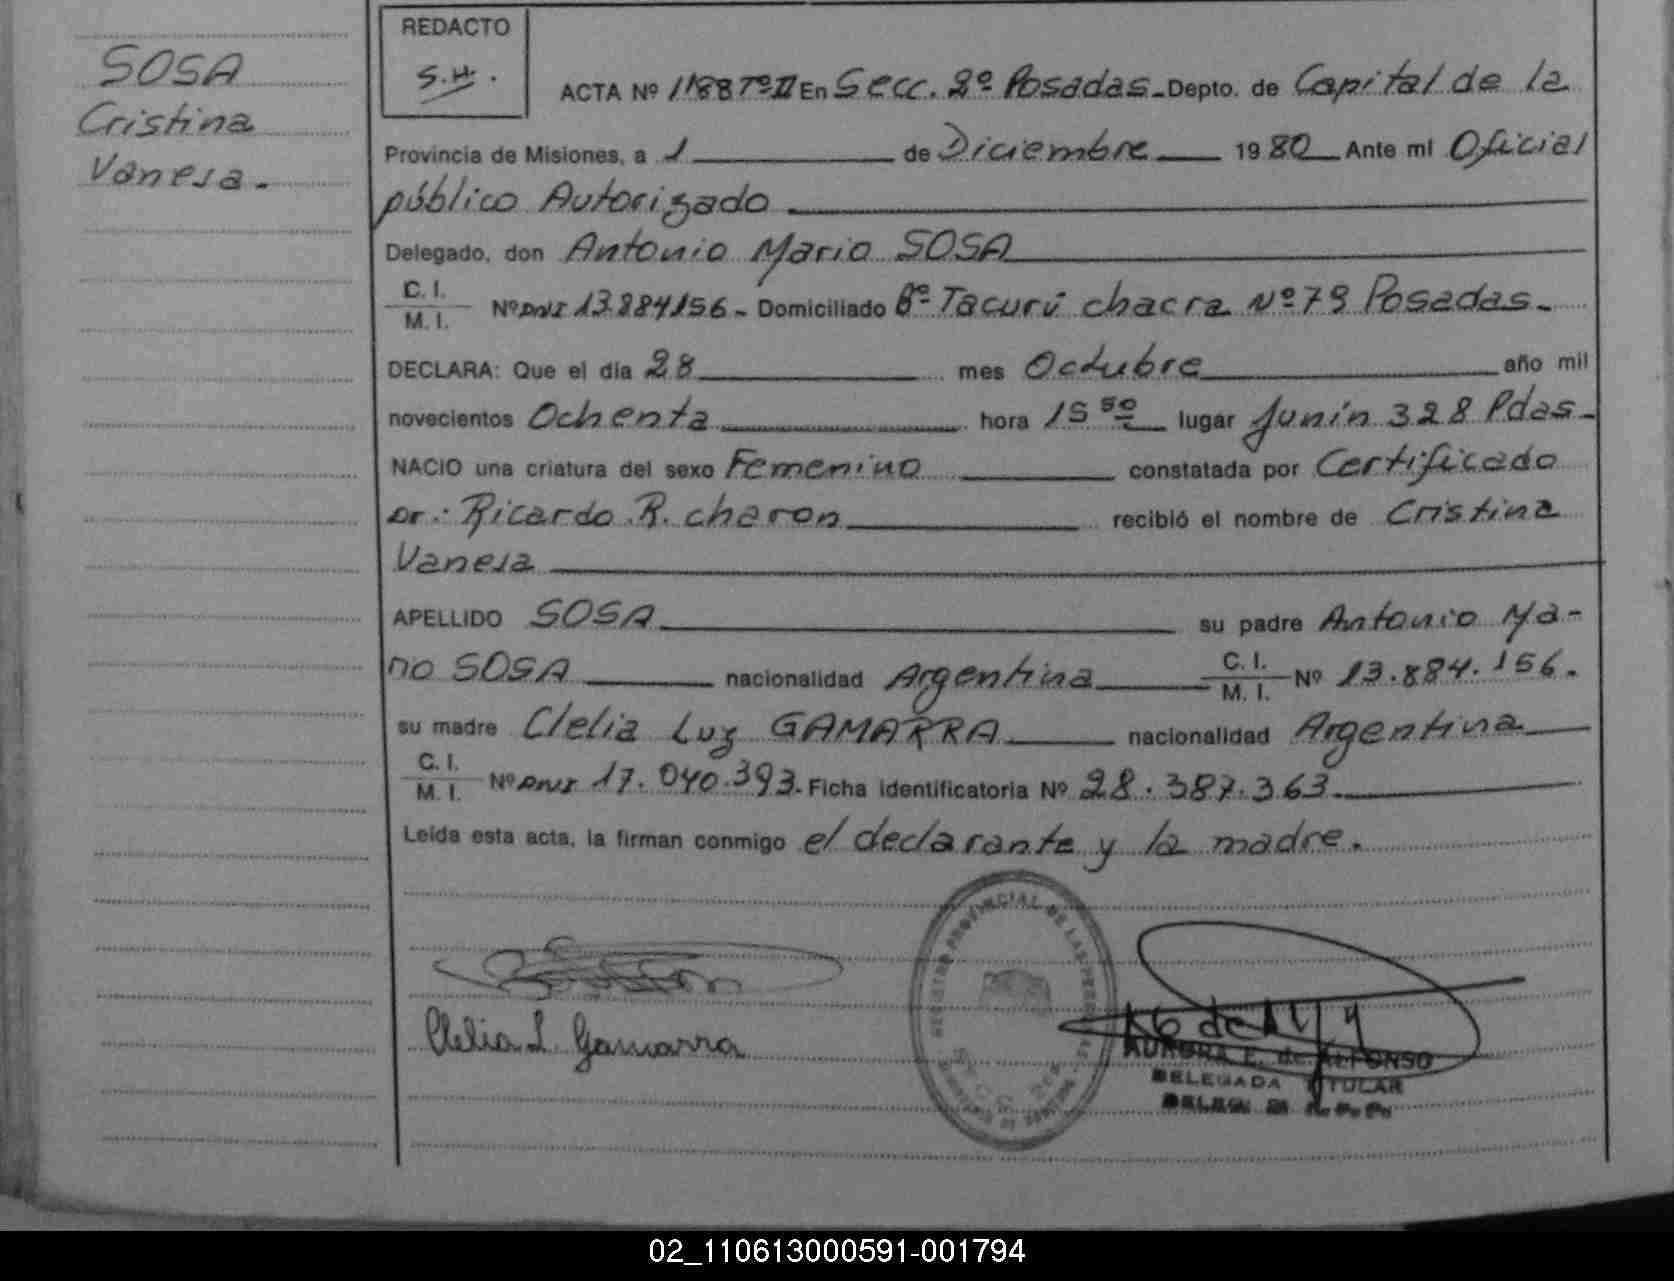 SOSA
Cristina
Vanesa.
REDACTO
S.H.
ACTA Nº 1188 Tº II En Secc. 2º Posadas. Depto. de Capital de la
Provincia de Misiones, a 1 de Diciembre 1980 Ante mi Oficial
público Autorizado
Delegado, don Antonio Mario SOSA
C. I.
M. I. Nº DNI 13.884156 - Domiciliado Bº Tacurú chacra Nº 79 Posadas.
DECLARA: Que el día 28 mes Octubre año mil
novecientos Ochenta hora 15 50 lugar Junín 328 Pdas.
NACIO una criatura del sexo Femenino constatada por Certificado
Dr.: Ricardo R. charon recibió el nombre de Cristina
Vanesa
APELLIDO SOSA su padre Antonio Ma-
rio SOSA nacionalidad Argentina C. I.
M. I. Nº 13.884.156.
su madre Clelia Luz GAMARRA nacionalidad Argentina
C. I.
M. I. Nº DNI 17.040.393. Ficha identificatoria Nº 28.387.363.
Leída esta acta, la firman conmigo el declarante y la madre.
REGISTRO PROVINCIAL DE LAS PERSONAS
Clelia L. Gamarra
AURORA E. de ALFONSO
DELEGADA TITULAR
02_110613000591-001794